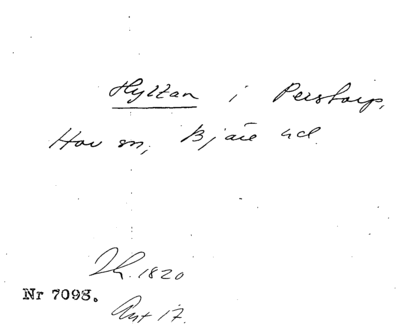 Hyltan i Perstorp,
Hov sn, Bjäre hd.
Th. 1820
Nr 7098.
Ant 17.